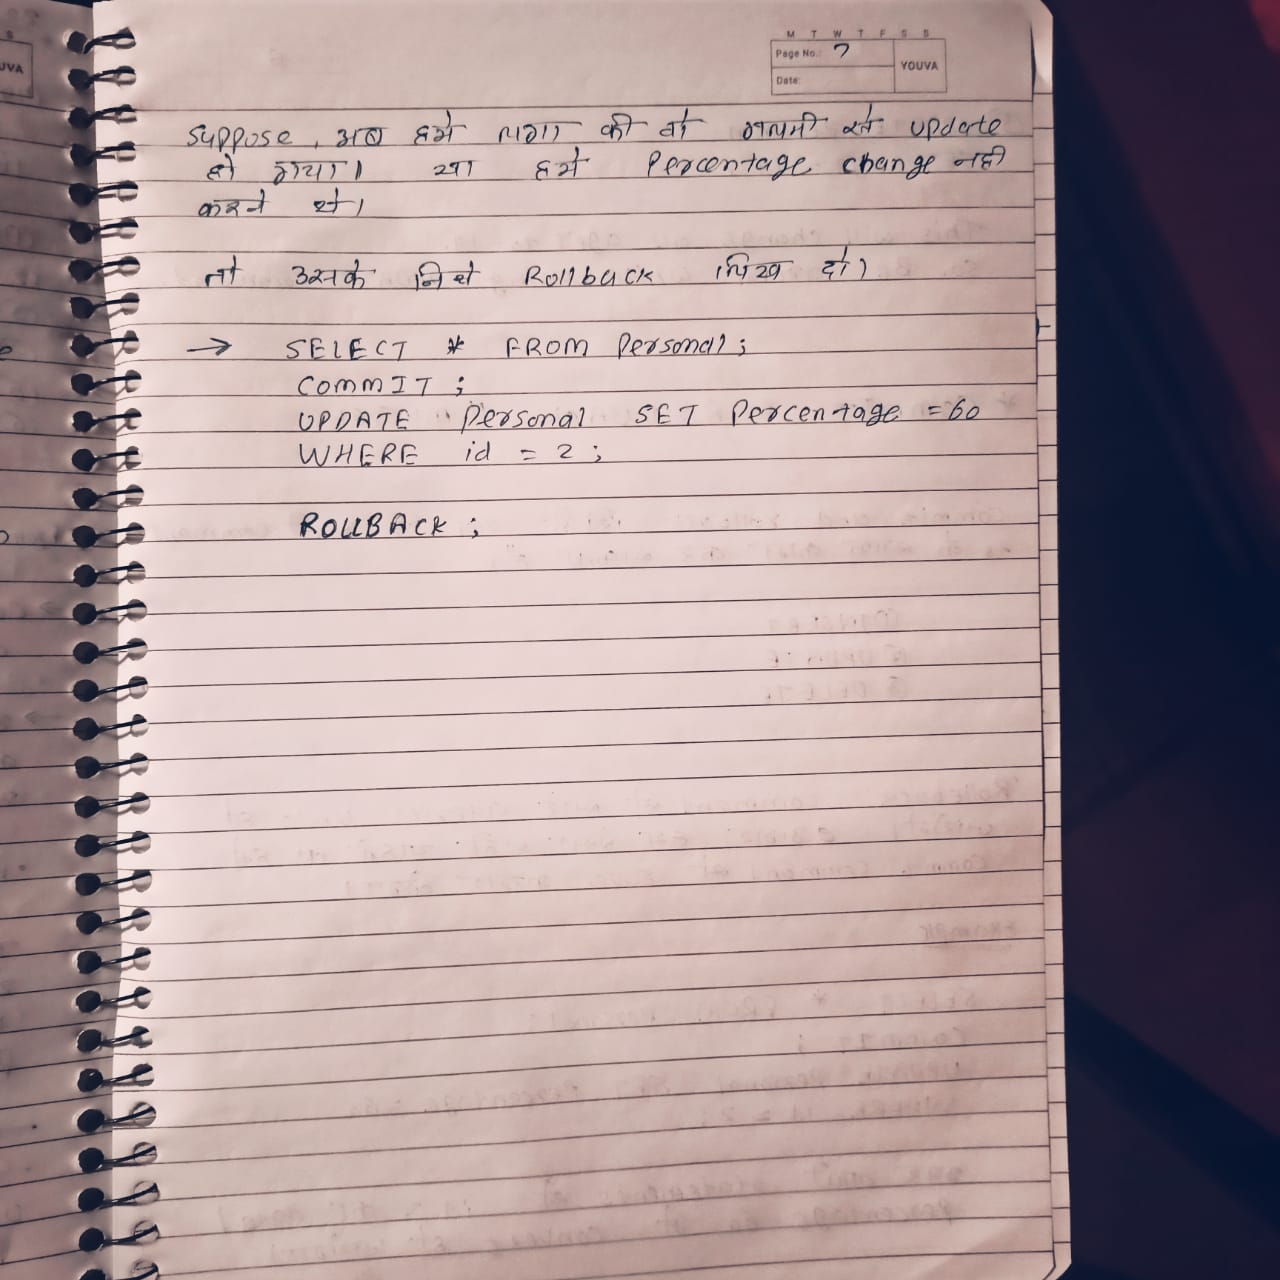 M T W T F S S
Page No.: 7
YOUVA
Date:
UVA
Suppose, अब हमे लगा की वो गलती से update
हो गया। या हमे Percentage change नही
करने थे।
तो उसके निचे Rollback लिख दो।
→ SELECT * FROM Personal;
COMMIT;
UPDATE Personal SET Percentage = 60
WHERE id = 2;
ROLLBACK;